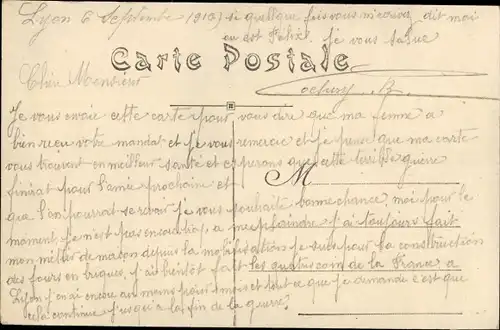 Lyon 6 Septembre (191 si quelque fois vous m'ecrivez dit moi
ou est Felix, je vous salue
Carte Postale
Cochury B.
Cher Monsieur
Je vous envoie cette carte pour vous dire que ma femme a
bien reçu votre mandat et je vous remercie et je pense que ma carte
vous trouvent en meilleur santé et esperons que cette terrible guère
M
finirat pour l'anné prochaine et
qu'a l'on pourrait se revoir je vous souhaite bonne chance, moi pour le
moment, je n'est pas en souci, a me plaindre j'ai toujours fait
mon métier de maçon depuis la mobilisation je suis pour la construction
des fours en briques, j'ai bientôt fait les quatre coin de la France a
Lyon j'en ai encore au moins pour mois et tout ce que je demande c'est que
cela continue jusqu'a la fin de la guerre.